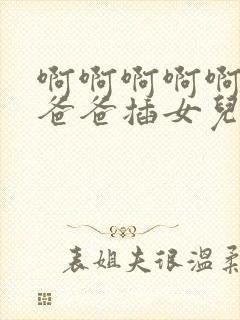 啊啊啊啊啊
爸爸插女兒
表姐夫很温柔